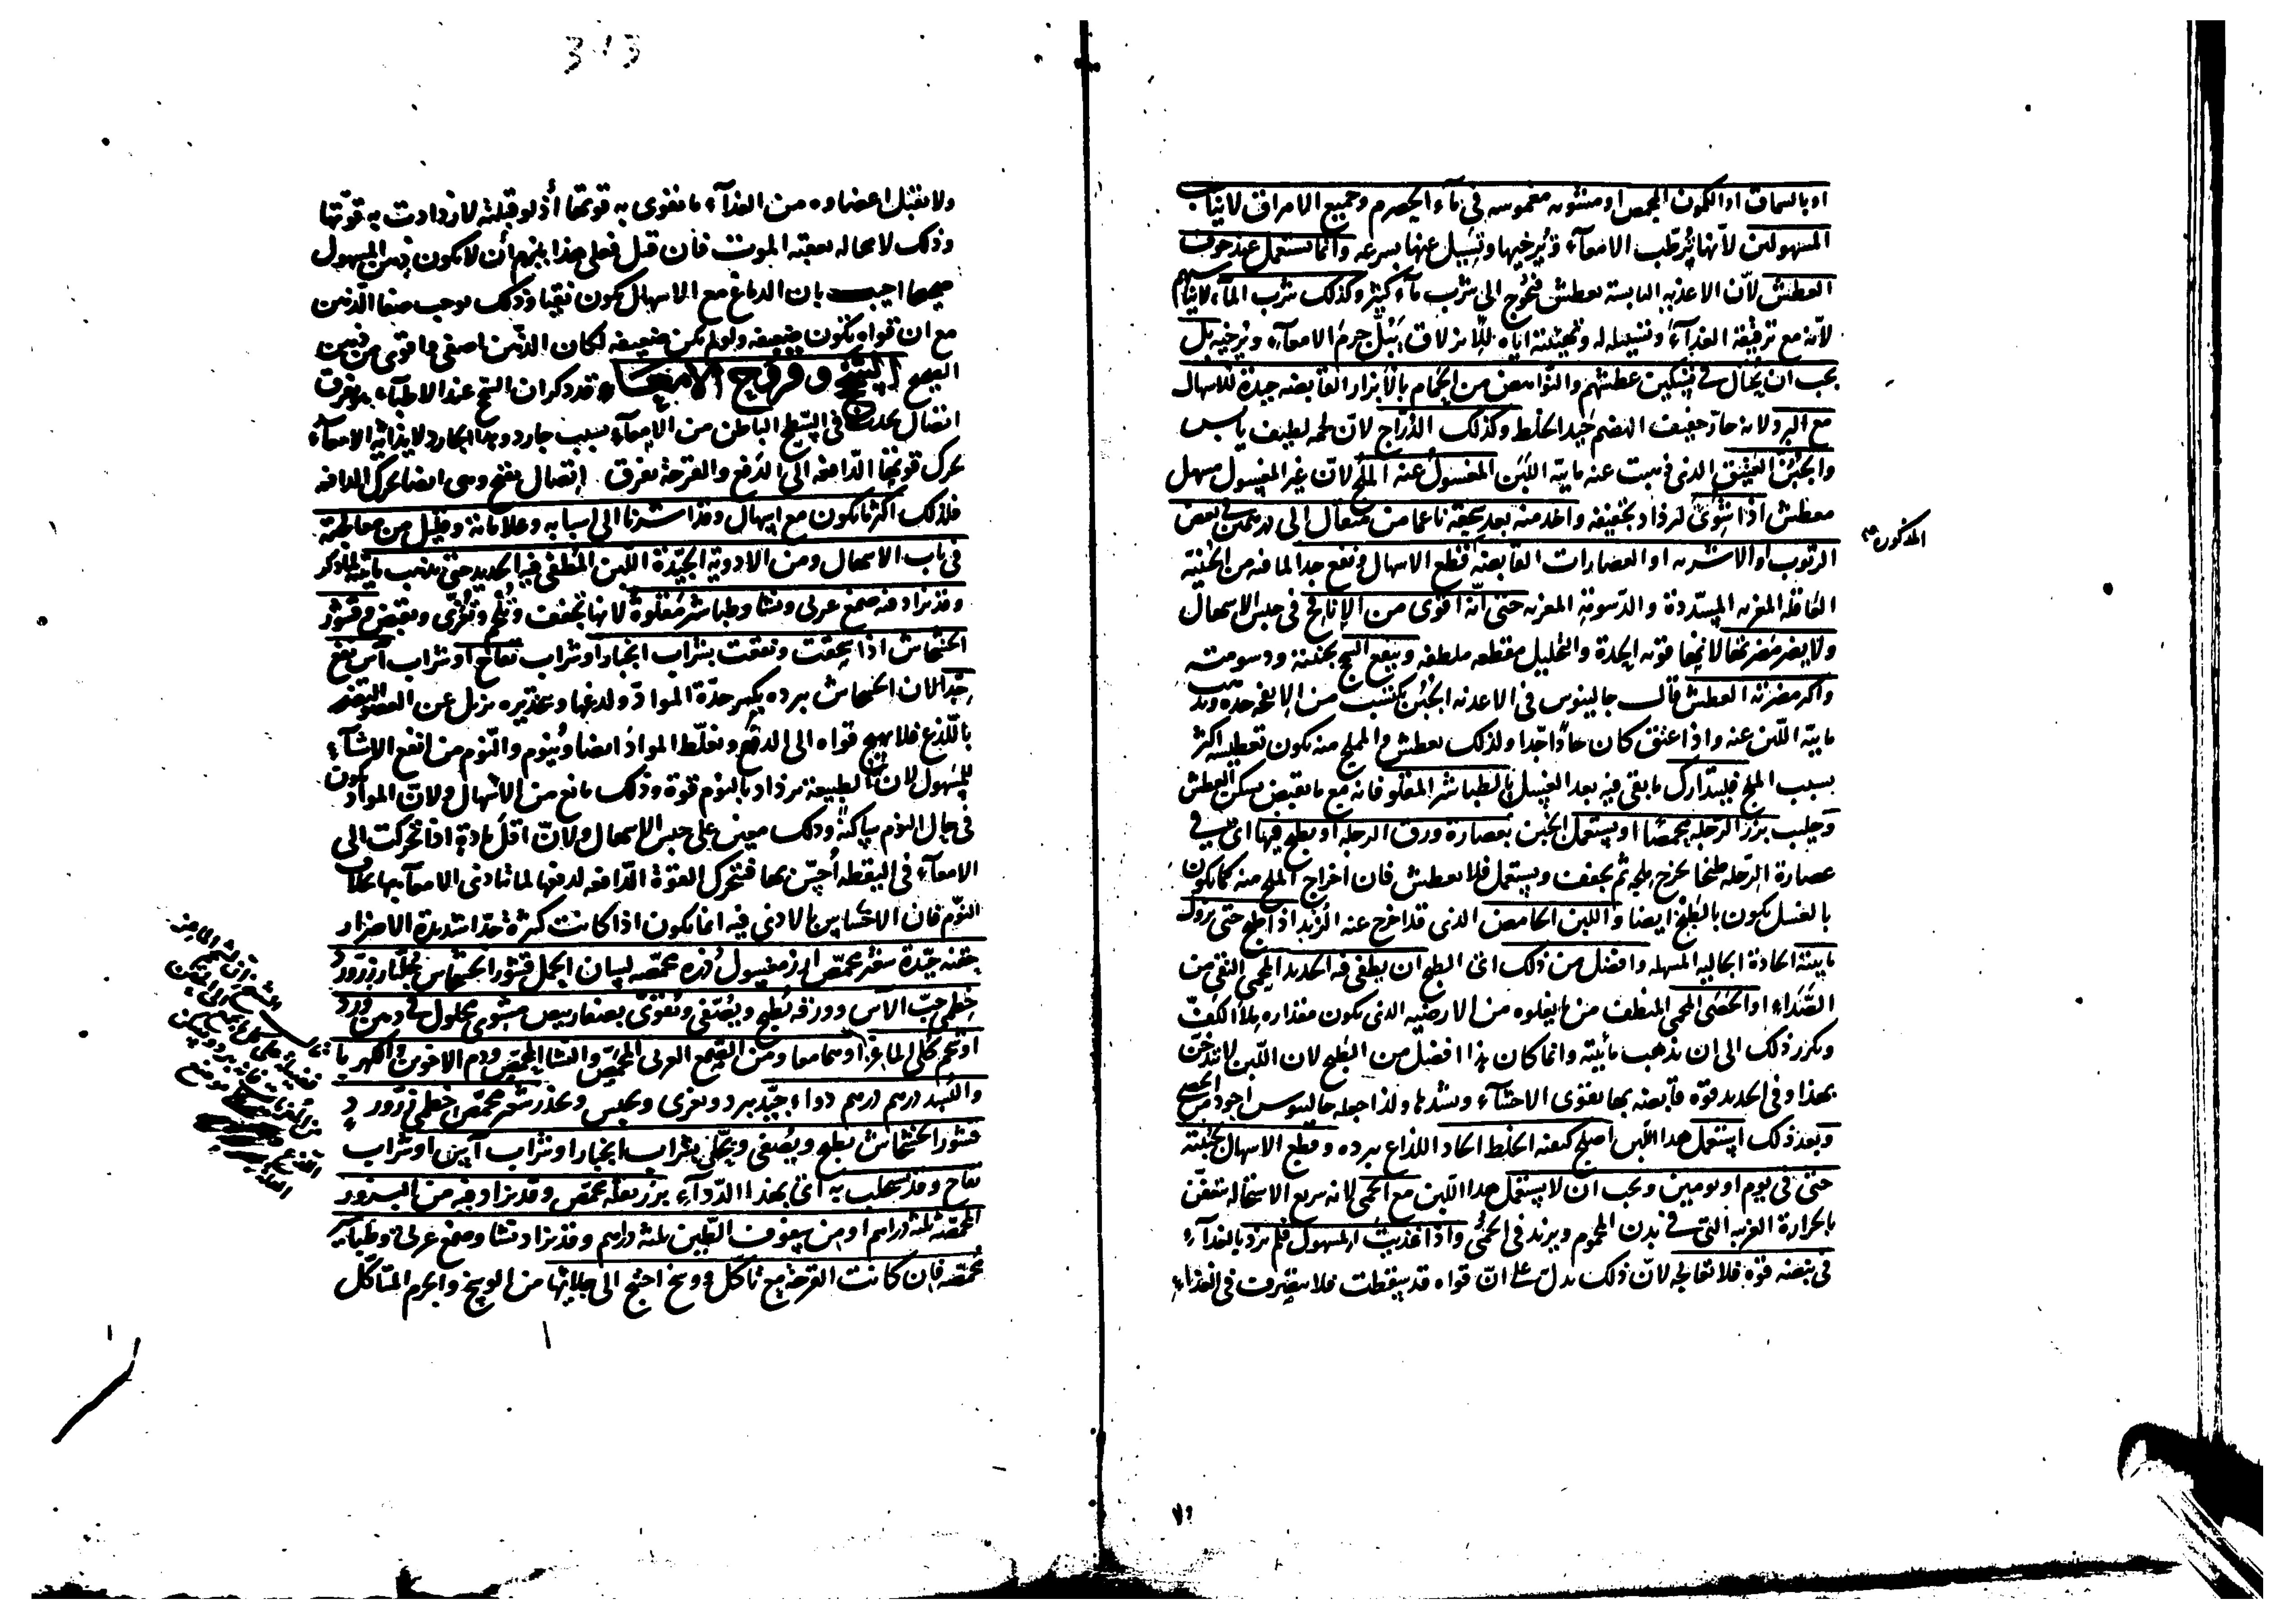 او بالسماق او الكمون المحمص او منثوره مغموسه فى مآء الحصرم وجميع الامراق لا يناسب
المسهولين لأنها تُرطّب الامعآء وتُرخيها وتسيل عنها بسرعه وانما تستعمل عند خوف
العطش لأن الاغذيه اليابسة تعطش فتحوج الى شرب مآء كثير وكذلك شرب المآء لا يناسبهم
لأنه مع ترقيقه الغذآء وتسييله له وتهيئته اياه للانزلاق يَبُلّ جرمَ الامعآء ويُرخيه بل
يجب ان يُحتال فى تسكين عطشهم والنواهض من الحمام بالأبزار القابضه جيدة للاسهال
مع البرد لانه حارّ خفيف الهضم جيد الخلط وكذلك الدُرّاج لانّ لحمه لطيف يابس
والجُبُنّ العتيق الذى ذهبت عنه مايية اللبَن المغسولُ عنه الملح لانّ غير المغسول مسهل
معطش اذا شُوِىَ ليزداد تجفيفه واخذ منه بعد سحقه ناعما من مثقال الى درهمين فى بعض
المذكورة
الربوب او الاشربه او العصارات القابضه قطع الاسهال ونفع جدا لما فيه من الجبنيّة
الغليظه المغريه المسدّدة والدسومة المغريه حتى انه اقوى من الإنافح فى حبس الاسهال
ولا يضر مضرتها لانها قويه الحِدة والتحليل مقطعه ملطفه وينفع السحج بجبنيته ودسومته
واكثر مضرته العطش قال جالينوس فى الاغذيه الجُبُن يكتسب من الانفحه حده وتذهب
مايية اللبن عنه واذا عتق كان حاداً جدا ولذلك يعطش والمملح منه يكون تعطيشه اكثر
بسبب الملح فليتدارك ما بقى فيه بعد الغسل بالطباشير المقلو فانه مع ما يقبض يسكن العطش
وحليب بزر الرجله محمصا او يستعمل الجبن بعصارة ورق الرجله او يطبخ فيها اى فى
عصارة الرجله طبخا يخرج ملحه ثم يجفف ويستعمل فلا يعطش فان اخراج الملح منه كما يكون
بالغسل يكون بالطبخ ايضا واللبن الحامض الذى قد اخرج عنه الزبد اذا طبخ حتى يزول
ماييته الحادة الجاليه المسهله وافضل من ذلك اى الطبخ ان يطفى فيه الحديد المحمى النقى من
الصَدَاء او الحَصَى المحمى المنظف من ما يعلوه من الارضيه الذى يكون مقداره ملأ الكفّ
ويكرر ذلك الى ان يذهب ماييته وانما كان هذا افضل من الطبخ لان اللبن لا يتدخّن
بهذا وفى الحديد قوة قابضه بها يقوى الاحشآء ويشدها ولذا جعله جالينوس اجود من الحصى
وبعد ذلك استعمل هذا اللبن اصلح كيفيه الخلط الحاد اللذاع ببرده وقطع الاسهال بجبنيته
حتى فى يوم او يومين ويجب ان لا يستعمل هذا اللبن مع الحمى لانه سريع الاستحاله يتعفن
بالحرارة الغريبه التى فى بدن المحموم ويزيد فى الحُمّى واذا غذيت المسهول فلم يزد بالغذآء
فى نبضه قوّه فلا تعالجه لانّ ذلك يدل على انّ قواه قد سقطت فلا يتصرف فى الغذاء
ولا يقبل اعضاوه من الغذآء ما يقوى به قوتها أذ لو قبلته لازدادت به قوتها
وذلك لا محاله يعقبه الموت فان قيل فعلى هذا يلزم أن لا يكون ذهن المسهول
صحيحا اجيب بان الدماغ مع الاسهال يكون نقيا وذلك يوجب صفا الذهن
مع ان قواه تكون ضعيفه ولو لم تكن ضعيفه لكان الذهن اصفى واقوى من ذهن
الصحيح السحج وقروح الامعآء قد ذكر ان السحج عند الاطبآء هو تفرق
اتصال يحدث فى السطح الباطن من الامعآء بسبب جارد وهذا الجارد لايذائه الامعآء
يحرك قوتها الدافعه الى الدفع والقرحة تفرق اتصال يتقيح وهى ايضا يحرك الدافعه
فلذلك اكثر ما يكون مع اسهال وقد اشرنا الى اسبابه وعلاماته وقليل من معالجته
فى باب الاسهال ومن الادوية الجيّدة اللبن المُطفى فيه الحديد حتى يذهب ماييته لما ذكر
وقد يزاد فيه صمغ عربى ونشا وطباشير مقلوة لانها تجفف وتُلحم وتُغرّى وتقبض وقشور
الخشخاش اذا سحقت ولعقت بشراب انجبار او شراب تفاح او شراب آس نفع
جدّا لان الخشخاش ببرده يكسر حدّة المواد ولذعها وبتخديره يزيل عن العضو التضرر
باللذع فلا يهيج قواه الى الدفع ويغلّظ المواد ايضا ويُنوم والنّوم من انفع الاشيآء
للمسهول لان الطبيعة تزداد بالنوم قوة وذلك مانع من الاسهال ولانّ المواد تكون
فى حال النوم ساكنة وذلك معين على حبس الاسهال ولانّ اقلّ مادةٍ اذا تحركت الى
الامعآء فى اليقظه أُحِسّ بها فتحرك القوة الدافعه لدفعها لما تتاذى الامعآ بها بخلاف
النوم فان الاحساس بالاذى فيه انما يكون اذا كانت كثيرة جدّا شديدة الاضرار
حقنه جيّدة شعير محمّص ارز مغسول ذره محمصه لسان الحمل قشور الخشخاش جُلّنار بزر وَرد
خطمى حبّ الآس وورقه يُطبخ ويُصَفّى ويُقوّى بصفار بيض مشوى محلول فى دهن وَرد
او شحم كلى الماعز او هما معا ومن الصمغ العربى المحمّص والنشا المحمّص ودم الاخوين والكهربا
والسبد درهم درهم دواء جيّد يبرد ويغرى ويحبس ويخدر شعير محمّص خطمى زرّ ورد
قشور الخشخاش يطبخ ويُصفى ويحلّى بشراب انجبار او شراب آس او شراب
تفاح وقد يستحلب به اى بهذا الدّوآء بزر بقله محمص وقد يزاد فيه من البزور
المحمّصه ثلثه دراهم او من سفوف الطين ثلثه دراهم وقد يزاد نشا وصمغ عربى وطباشير
محمّصه فان كانت القرحة مع تآكل ووسخ احتيج الى جلائها من الوسخ والجرم المتآكل